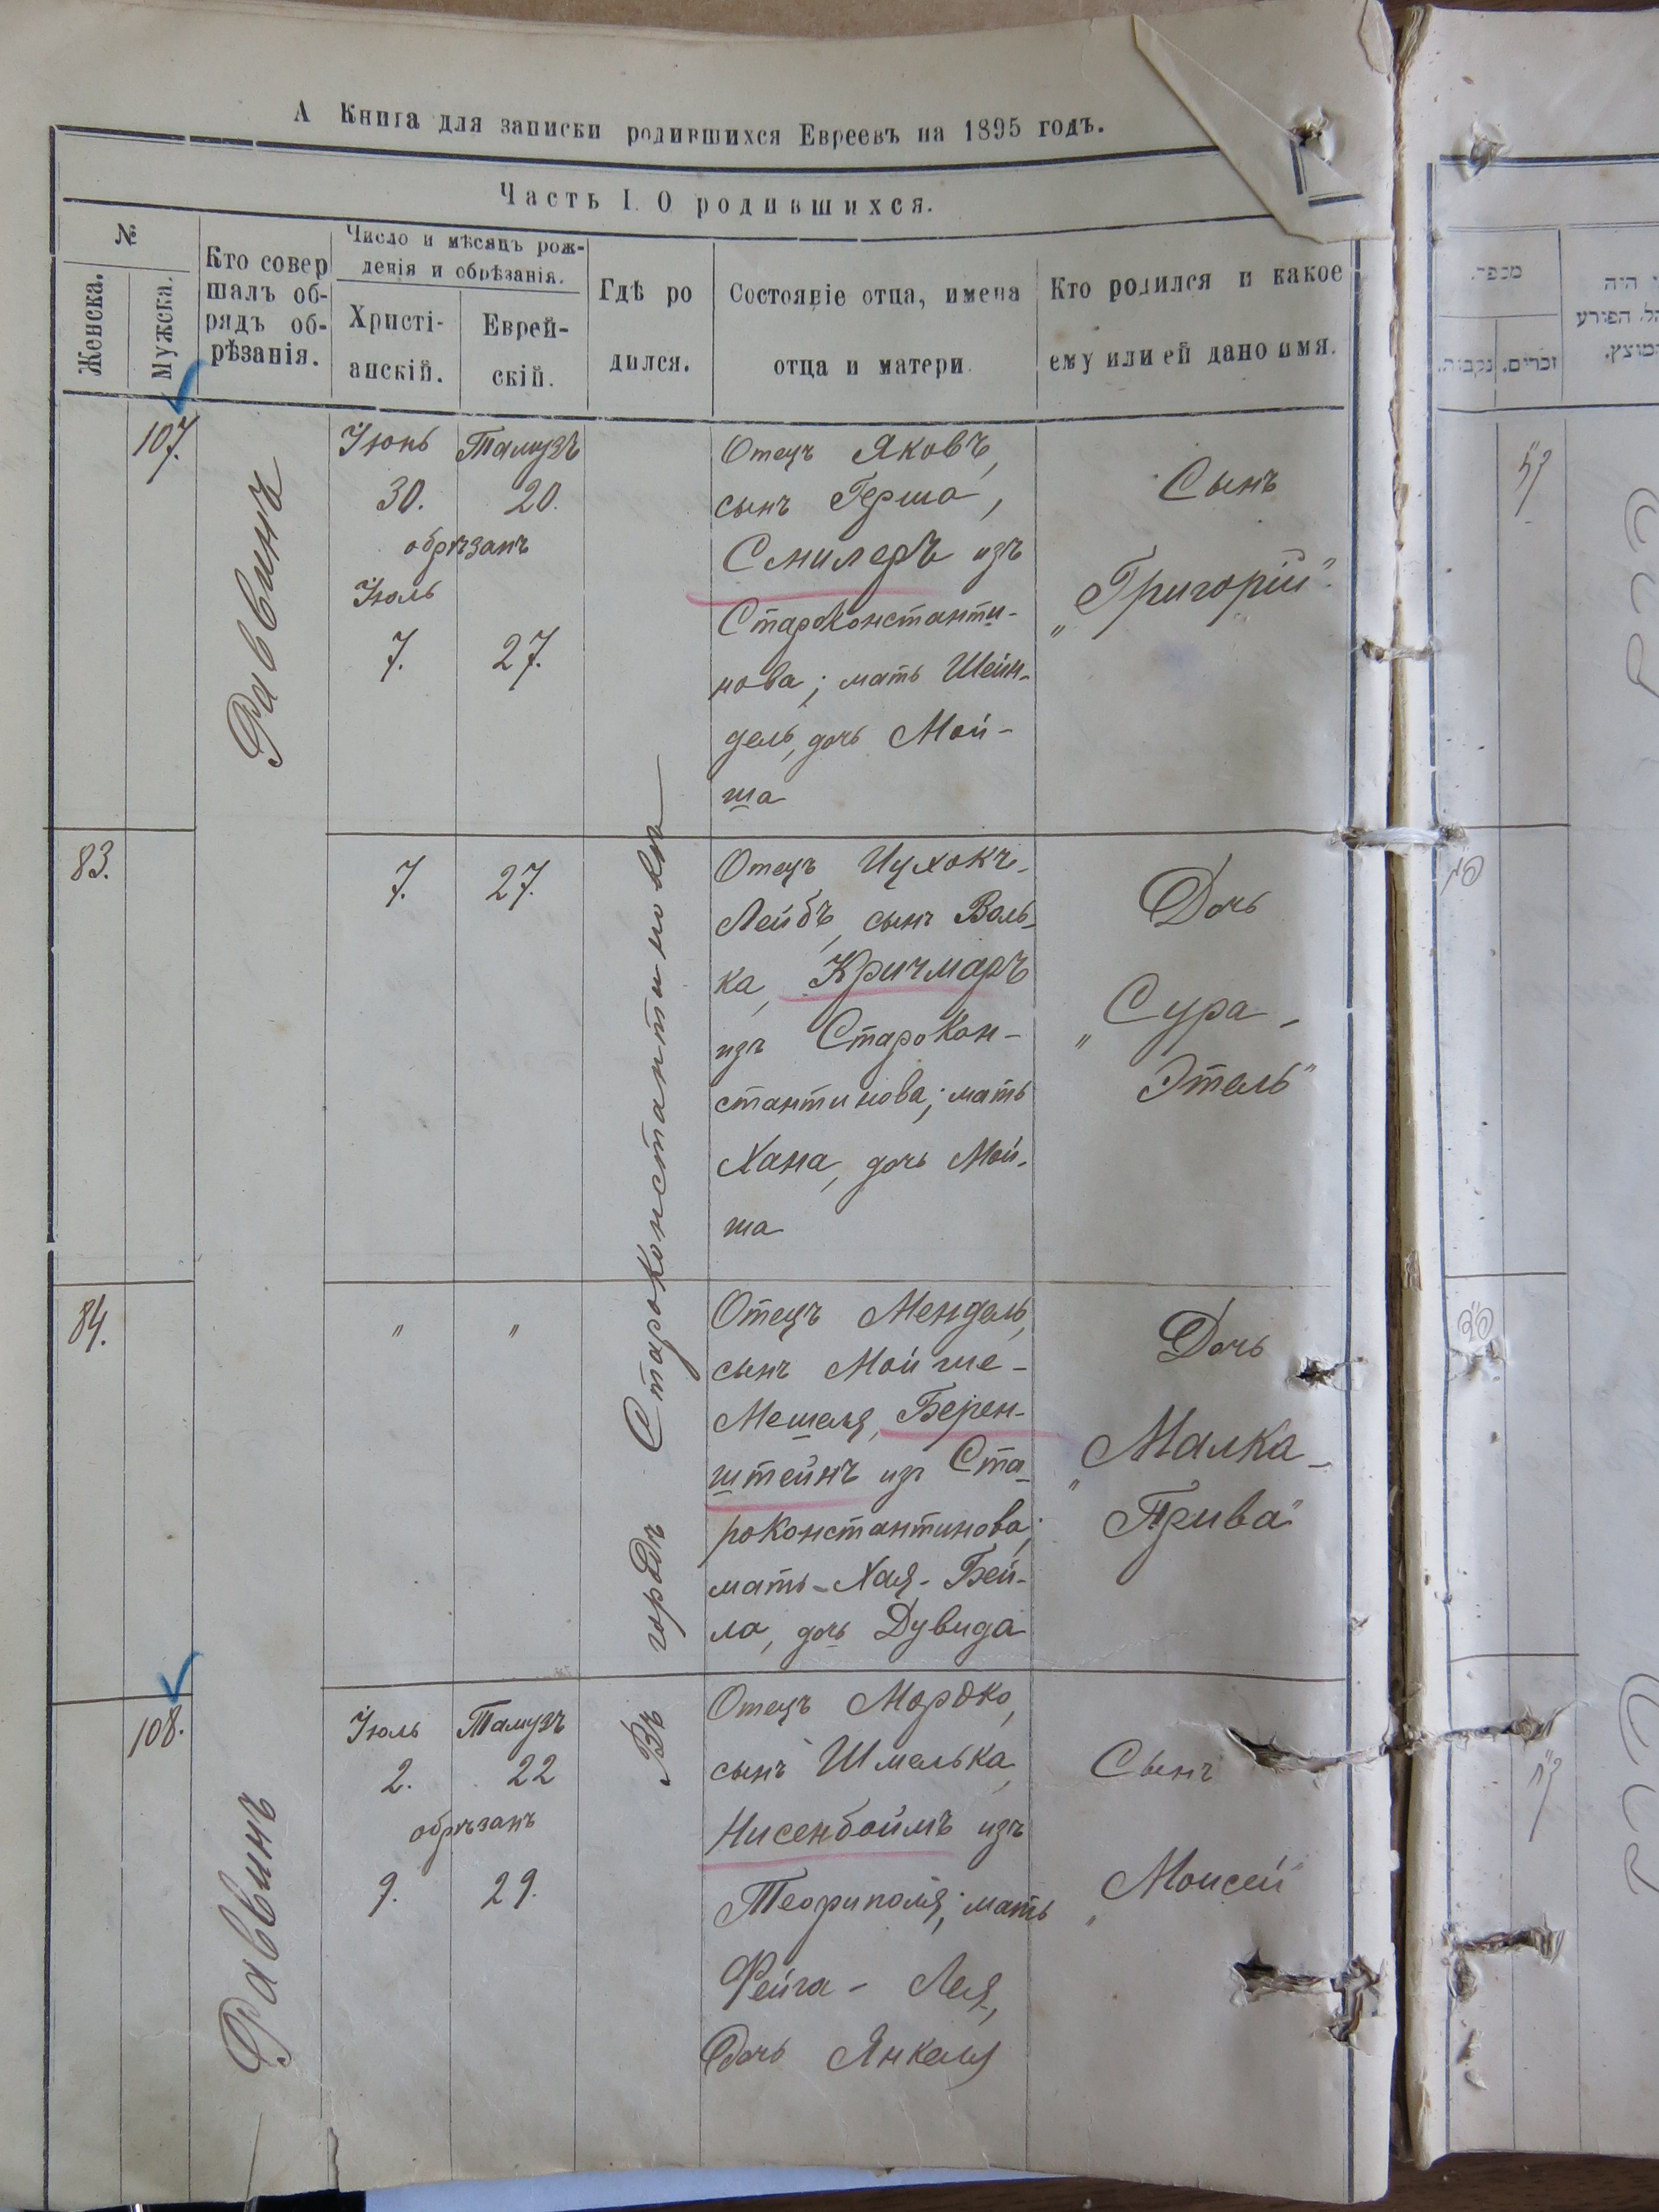 А Книга для записки родившихся Евреевъ на 1895 годъ.
Часть I. О родившихся.
№
Женска.
Мужска.
Кто совер
шалъ об-
рядъ об-
рѣзанія.
Число и мѣсяцъ рож-
денія и обрѣзанія.
Христі-
анскій.
Еврей-
скій.
Гдѣ ро
дился.
Состояніе отца, имена
отца и матери.
Кто родился и какое
ему или ей дано имя.
107.
Раввинъ
Іюнь Тамузъ
30. 20.
обрѣзанъ
Іюль
7. 27.
Отецъ Яковъ,
сынъ Герша,
Смилеръ изъ
Староконстанти-
нова; мать Шейн-
дель, дочь Мой-
ша
Сынъ
„Григорій“.
83.
7. 27.
Въ городѣ Староконстантиновѣ
Отецъ Ицхокъ-
Лейбъ, сынъ Воль-
ка, Кричмаръ
изъ Старокон-
стантинова; мать
Хана, дочь Мой-
ша
Дочь
„Сура-
Этель“
84.
" "
Отецъ Мендель,
сынъ Мойше-
Мешеля, Берен-
штейнъ изъ Ста-
роконстантинова;
мать-Хая-Бей-
ла, дочь Дувида
Дочь
„Малка-
Прива“
108.
Раввинъ
Іюль Тамузъ
2. 22
обрѣзанъ
9. 29.
Отецъ Мордко,
сынъ Шмелька,
Нисенбоймъ изъ
Теофиполя; мать
Фейга - Лея,
дочь Янкеля
Сынъ
„Моисей“
מספר.
נקבות.
זכרים.
היה
הפורע